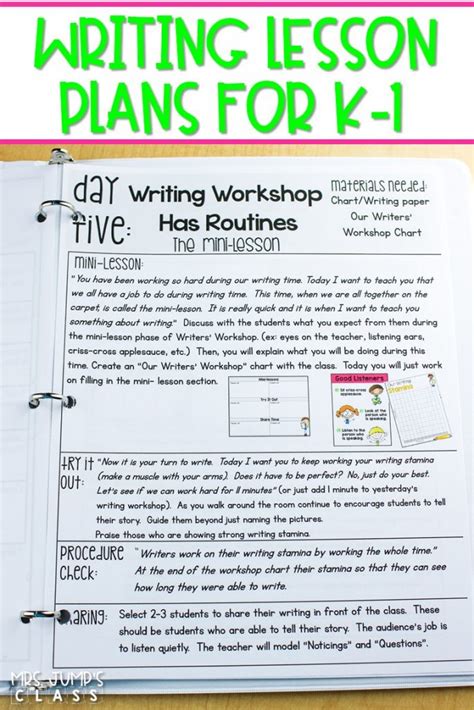 WRITING LESSON
PLANS FOR K-1
day
five:
Writing Workshop
Has Routines
The mini-lesson
materials needed:
Chart/Writing paper
Our Writers'
Workshop Chart
mini-lesson:
"You have been working so hard during our writing time. Today I want to teach you that
we all have a job to do during writing time. This time, when we are all together on the
carpet, is called the mini-lesson. It is really quick and it is when I want to teach you
something about writing." Discuss with the students what you expect from them during
the mini-lesson phase of Writers' Workshop. (ex: eyes on the teacher, listening ears,
criss-cross applesauce, etc.) Then, you will explain what you will be doing during this
time. Create an "Our Writers' Workshop" chart with the class. Today you will just work
on filling in the mini- lesson section.
Mini-lessons
Try It Out
Share Time
Good Listeners
Sit criss cross
applesauce.
Look at the
person who
is speaking.
Listen to the
person who
is speaking.
Our Writing
Stamina
try it
out:
"Now it is your turn to write. Today I want you to keep working your writing stamina
(make a muscle with your arms). Does it have to be perfect? No, just do your best.
Let's see if we can work hard for 8 minutes" (or just add 1 minute to yesterday's
writing workshop). As you walk around the room continue to encourage students to tell
their story. Guide them beyond just naming the pictures.
Praise those who are showing strong writing stamina.
procedure
check:
"Writers work on their writing stamina by working the whole time."
At the end of the workshop chart their stamina so that they can see
how long they were able to write.
haring:
Select 2-3 students to share their writing in front of the class. These
should be students who are able to tell their story. The audience's job is
to listen quietly. The teacher will model "Noticings" and "Questions".
MRS. JUMP'S
CLASS